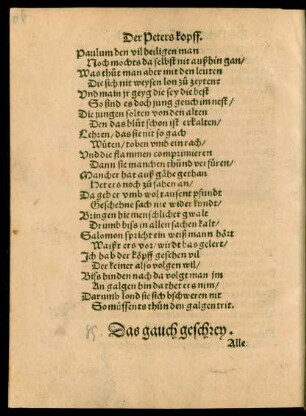 Der Peters kopff.
Paulum den vil heiligen man
Noch mochts da selbst nit außhin gan/
Was thůt man aber mit den leuten
Die sich nit weysen lon zů zeyten
Vnd main jr geyg die sey die best
So sind es doch jung geuch im nest/
Die jungen solten von den alten
Den das blůt schon ist erkalten/
Lehren/ das sie nit so gach
Wůten/ toben vmb ein rach/
Vnd die flammen comprimieren
Dann sie manchen thůnd verfüren/
Mancher hat auß gähe gethan
Het ers noch zů fahen an/
Da geb er vmb wol tausent pfundt
Geschehne sach nie wider kundt/
Bringen hie menschlicher gwalt
Drumb biß in allen sachen kalt/
Salomon spricht ein weiß mann hört
Waißt ers vor/ wirdt bas gelert/
Ich hab der köpff gesehen vil
Der keiner also volgen wil/
Biß hinden nach da volgt man jm
An galgen hin da thet ers nim/
Darumb lond sie sich bschweren nit
So můssents thůn den galgen trit.
85
Das gauch geschrey.
Alle